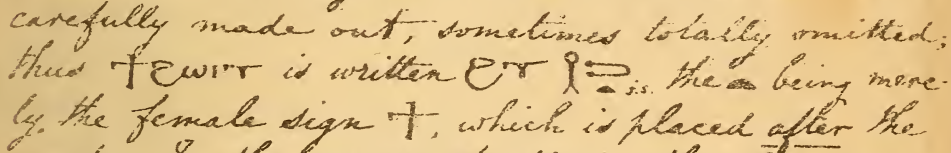 carefully made out, sometimes totally omitted;
thus is written the being mere-
ly, the female sign ϯ, which is placed after the